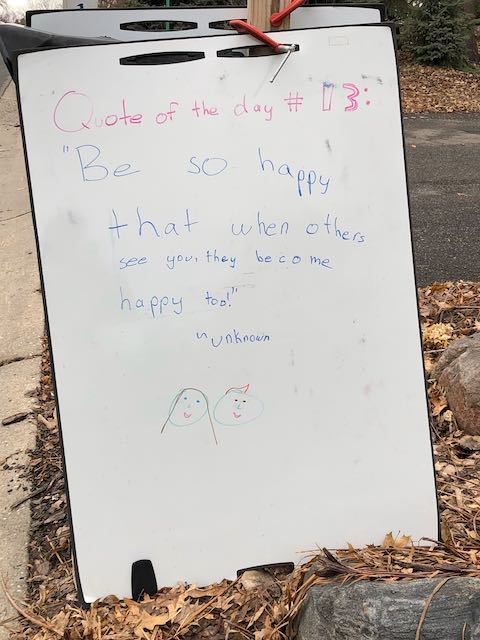 Quote of the day # 13:
"Be so happy
that when others
see you, they become
happy too!"
~unknown